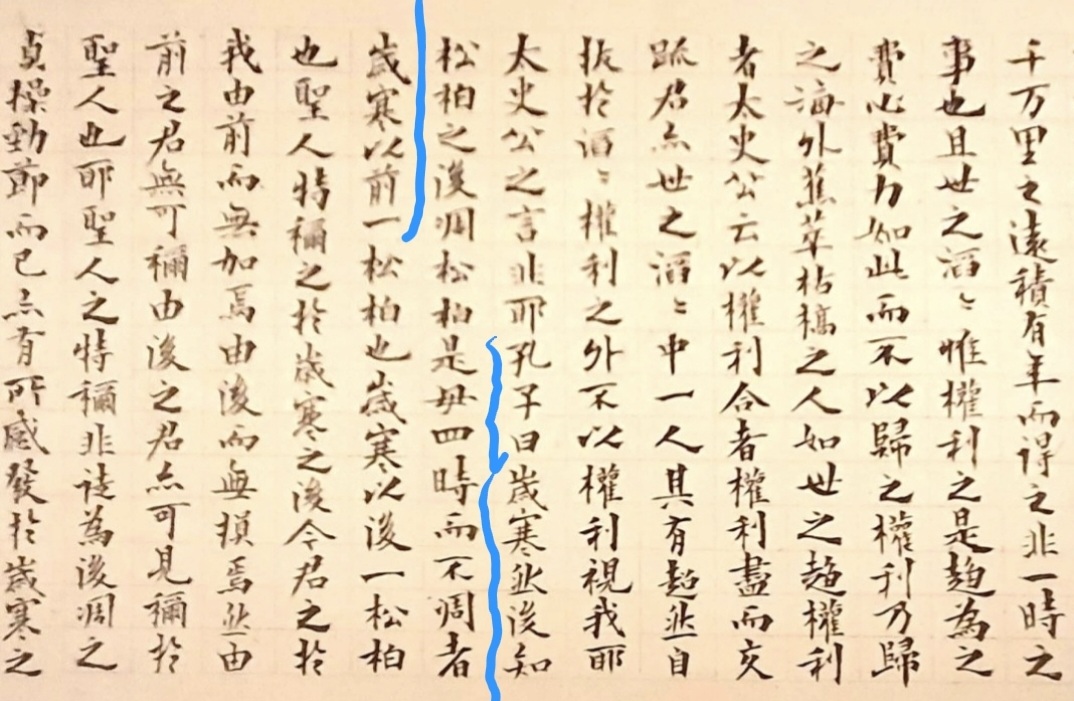 千万里之遠積有年而得之非一時之
事也且世之滔〻惟權利之是趨為之
費心費力如此而不以歸之權利乃歸
之海外蕉萃枯槁之人如世之趨權利
者太史公云以權利合者權利盡而交
踈君亦世之滔〻中一人其有超然自
拔於滔〻權利之外不以權利視我耶
太史公之言非耶孔子曰歲寒然後知
松柏之後凋松柏是毋四時而不凋者
歲寒以前一松柏也歲寒以後一松柏
也聖人特稱之於歲寒之後今君之於
我由前而無加焉由後而無損焉然由
前之君無可稱由後之君亦可見稱於
聖人也耶聖人之特稱非徒為後凋之
貞操勁節而已亦有所感發於歲寒之